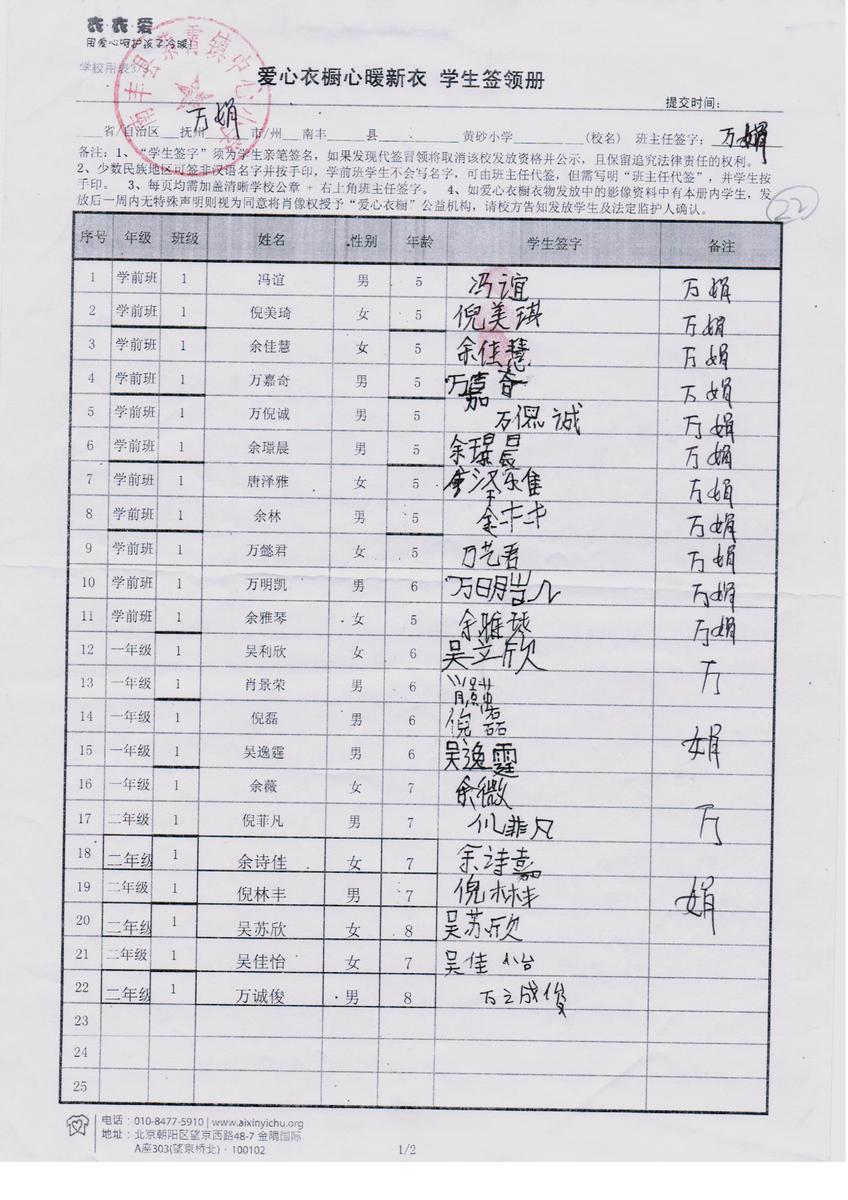 衣·衣·爱
用爱心呵护孩子冷暖!
学校用表3/3
南丰县紫霄镇中心小学
爱心衣橱心暖新衣 学生签领册
提交时间:
万娟
省/自治区 抚州 市/州 南丰 县 黄砂小学 (校名) 班主任签字: 万娟
备注: 1、“学生签字”须为学生亲笔签名, 如果发现代签冒领将取消该校发放资格并公示, 且保留追究法律责任的权利。
2、少数民族地区可签非汉语名字并按手印, 学前班学生不会写名字, 可由班主任代签, 但需写明“班主任代签”, 并学生按
手印。 3、每页均需加盖清晰学校公章 + 右上角班主任签字。 4、如爱心衣橱衣物发放中的影像资料中有本册内学生, 发
放后一周内无特殊声明则视为同意将肖像权授予“爱心衣橱”公益机构, 请校方告知发放学生及法定监护人确认。
22
序号 年级 班级 姓名 性别 年龄 学生签字 备注
1 学前班 1 冯谊 男 5 冯谊 万娟
2 学前班 1 倪美琦 女 5 倪美琪 万娟
3 学前班 1 余佳慧 女 5 余佳慧 万娟
4 学前班 1 万嘉奇 男 5 万嘉奇 万娟
5 学前班 1 万倪诚 男 5 万倪诚 万娟
6 学前班 1 余璟晨 男 5 余璟晨 万娟
7 学前班 1 唐泽雅 女 5 万娟
8 学前班 1 余林 男 5 余林 万娟
9 学前班 1 万懿君 女 5 万艺君 万娟
10 学前班 1 万明凯 男 6 万明凯 万娟
11 学前班 1 余雅琴 女 5 余雅琴 万娟
12 一年级 1 吴利欣 女 6 吴立欣
13 一年级 1 肖景荣 男 6 万
14 一年级 1 倪磊 男 6 倪磊
15 一年级 1 吴逸霆 男 6 吴逸霆 娟
16 一年级 1 余薇 女 7 余微
17 二年级 1 倪菲凡 男 7 仉菲凡 万
18 二年级 1 余诗佳 女 7 余诗嘉
19 二年级 1 倪林丰 男 7 倪林丰 娟
20 二年级 1 吴苏欣 女 8 吴苏欣
21 二年级 1 吴佳怡 女 7 吴佳怡
22 二年级 1 万诚俊 男 8 万诚俊
23
24
25
电话: 010-8477-5910 | www.aixinyichu.org
地址: 北京朝阳区望京西路48-7 金隅国际
A座303(望京桥北) · 100102
1/2